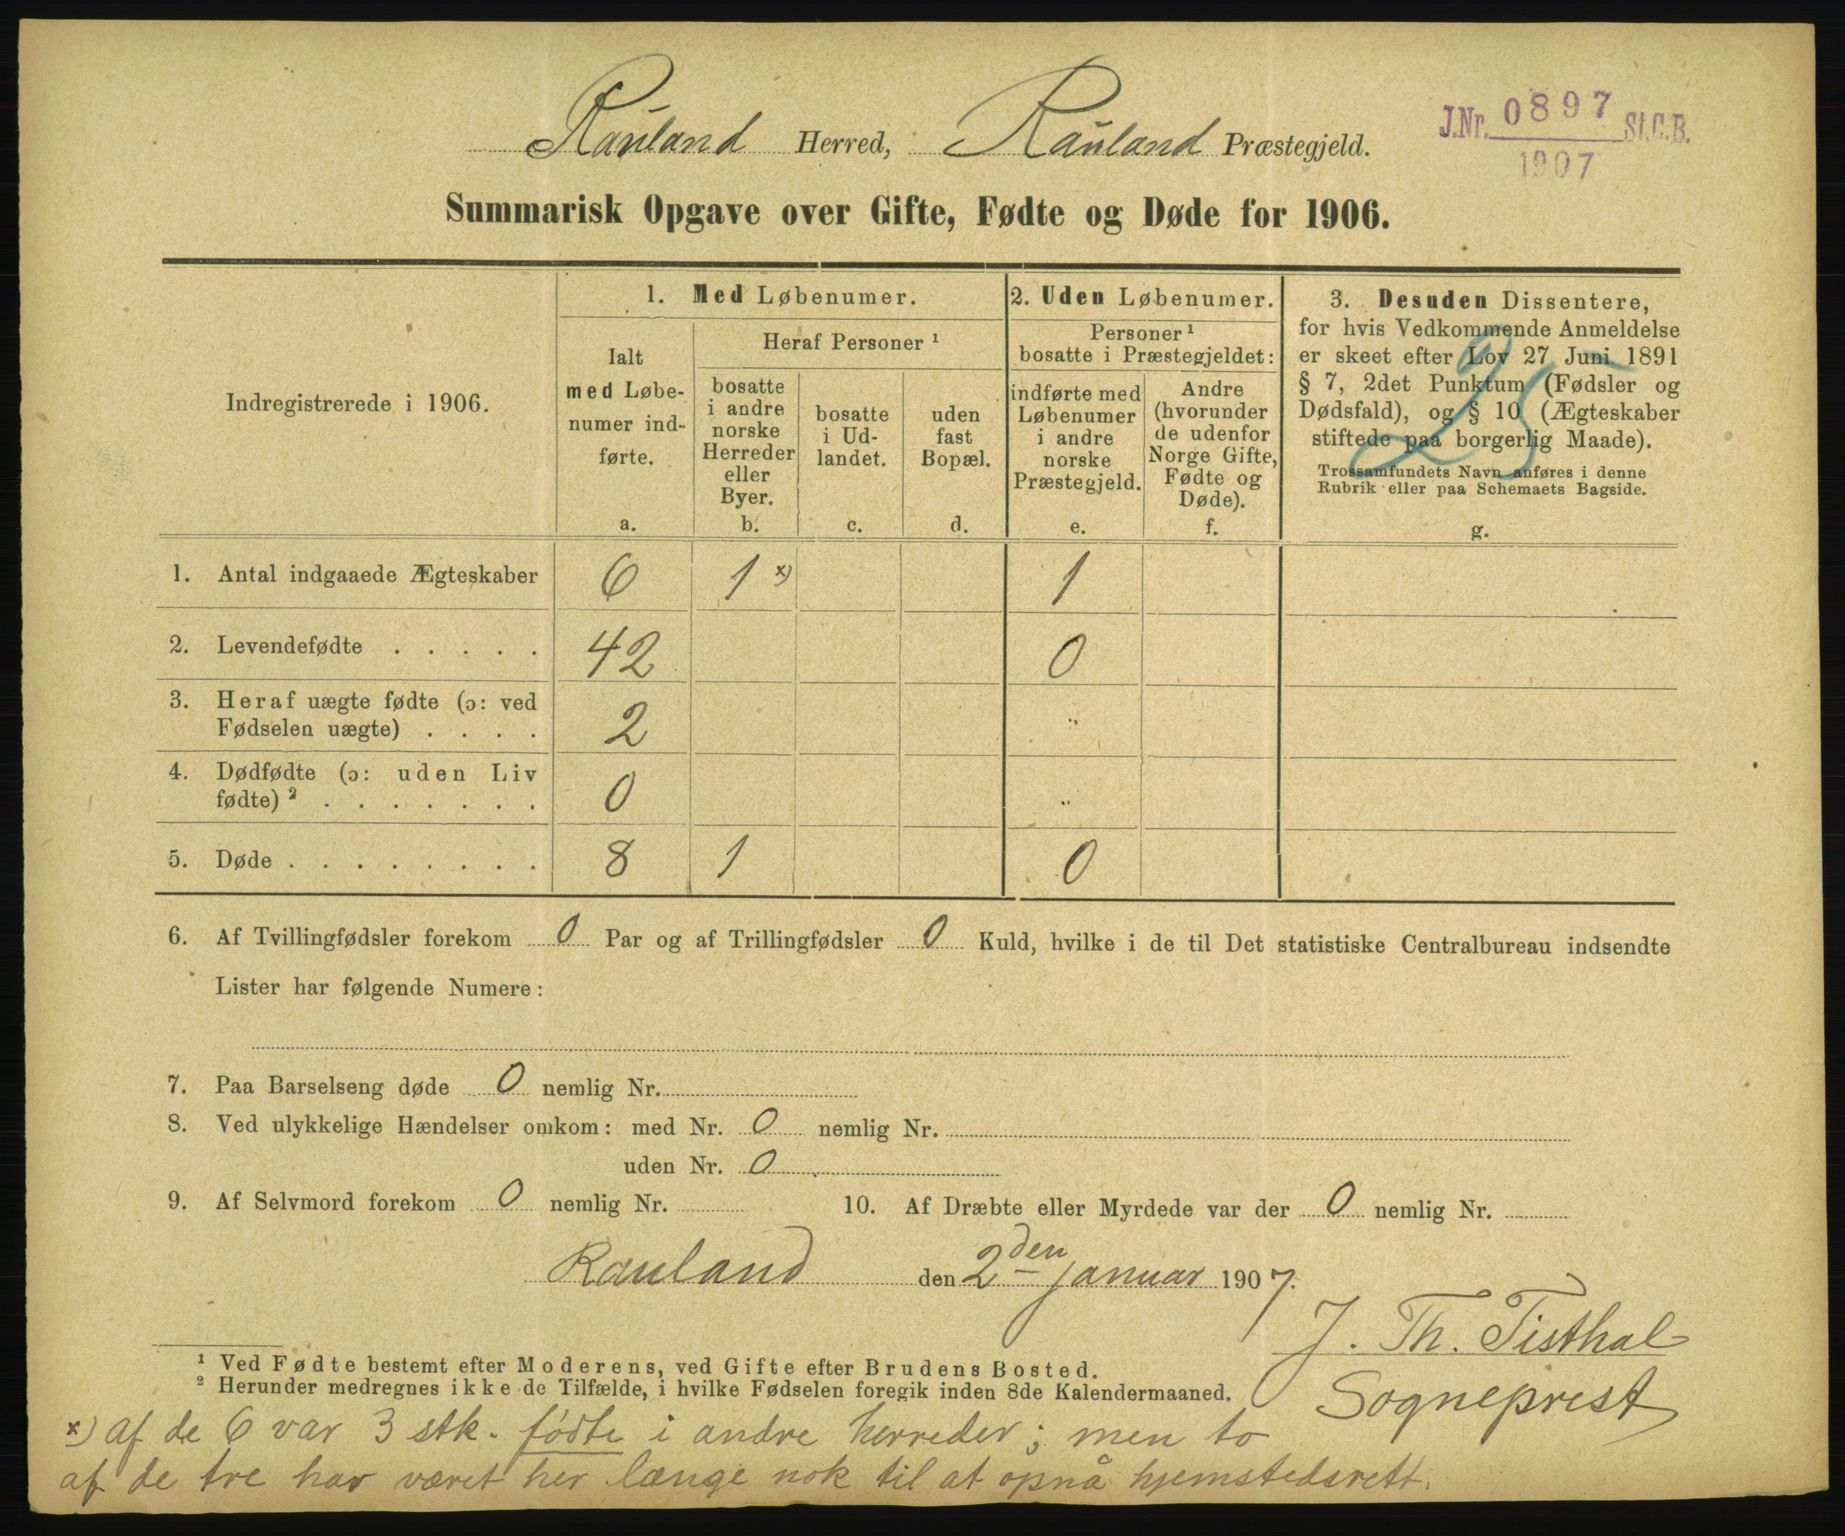 Rauland Herred, Rauland Præstegjeld.
J.Nr. 0897 St.C.B.
1907
Summarisk Opgave over Gifte, Fødte og Døde for 1906.
Indregistrerede i 1906.
1. Med Løbenumer.
Ialt
med Løbe-
numer ind-
førte.
a.
Heraf Personer ¹
bosatte
i andre
norske
Herreder
eller
Byer.
b.
bosatte
i Ud-
landet.
c.
uden
fast
Bopæl.
d.
2. Uden Løbenumer.
Personer ¹
bosatte i Præstegjeldet:
indførte med
Løbenumer
i andre
norske
Præstegjeld.
e.
Andre
(hvorunder
de udenfor
Norge Gifte,
Fødte og
Døde).
f.
3. Desuden Dissentere,
for hvis Vedkommende Anmeldelse
er skeet efter Lov 27 Juni 1891
§ 7, 2det Punktum (Fødsler og
Dødsfald), og § 10 (Ægteskaber
stiftede paa borgerlig Maade).
Trossamfundets Navn anføres i denne
Rubrik eller paa Schemaets Bagside.
g.
25
1. Antal indgaaede Ægteskaber 6 1 x) 1
2. Levendefødte . . . . . 42 0
3. Heraf uægte fødte (ɔ: ved
Fødselen uægte) . . . . 2 "
4. Dødfødte (ɔ: uden Liv
fødte) ² . . . . . . . 0 "
5. Døde . . . . . . . . 8 1 0
6. Af Tvillingfødsler forekom 0 Par og af Trillingfødsler 0 Kuld, hvilke i de til Det statistiske Centralbureau indsendte
Lister har følgende Numere:
7. Paa Barselseng døde 0 nemlig Nr.
8. Ved ulykkelige Hændelser omkom: med Nr. 0 nemlig Nr.
uden Nr. 0
9. Af Selvmord forekom 0 nemlig Nr. 10. Af Dræbte eller Myrdede var der 0 nemlig Nr.
Rauland den 2den januar 1907.
J. Th. Tisthal
Sogneprest
¹ Ved Fødte bestemt efter Moderens, ved Gifte efter Brudens Bosted.
² Herunder medregnes ikke de Tilfælde, i hvilke Fødselen foregik inden 8de Kalendermaaned.
x) af de 6 var 3 stk. fødte i andre herreder; men to
af de tre har været her længe nok til at opnå hjemstedsrett.